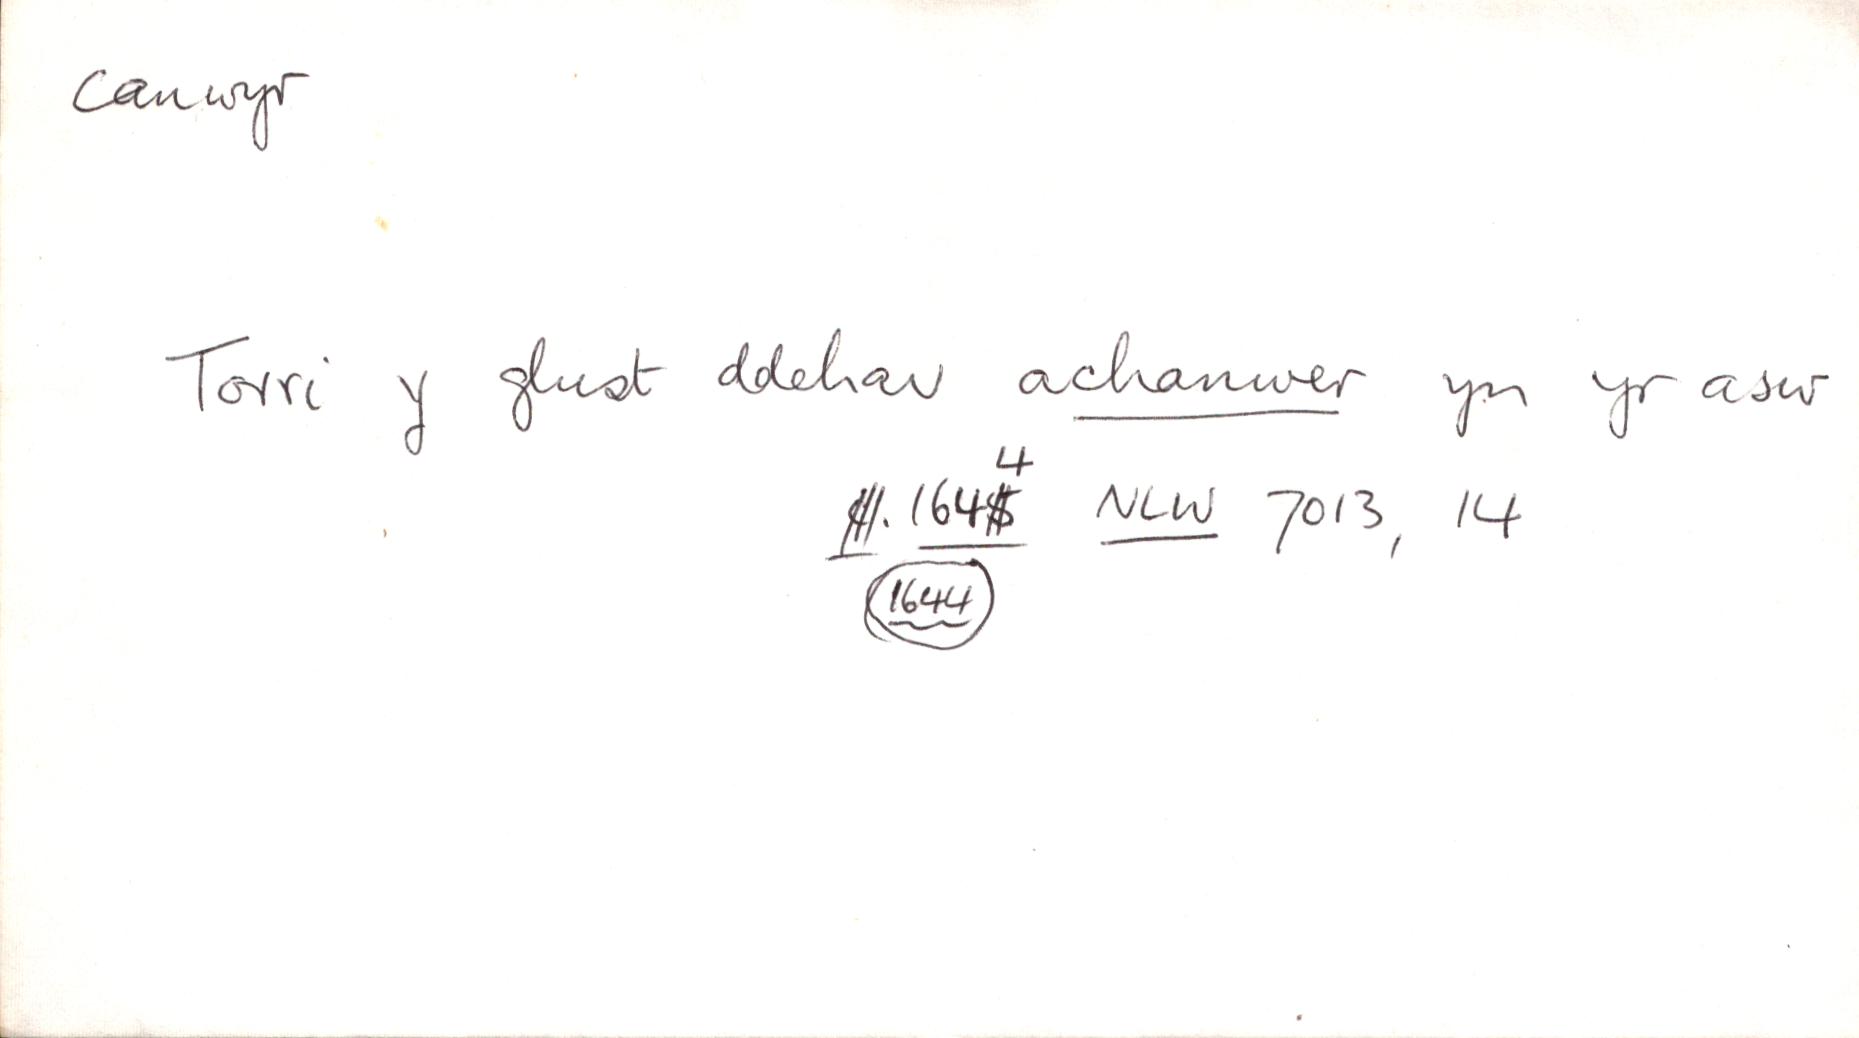 canwyr
Torri y glust ddehav achanwer yn yr asw
4
1645 NLW 7013, 14
1644